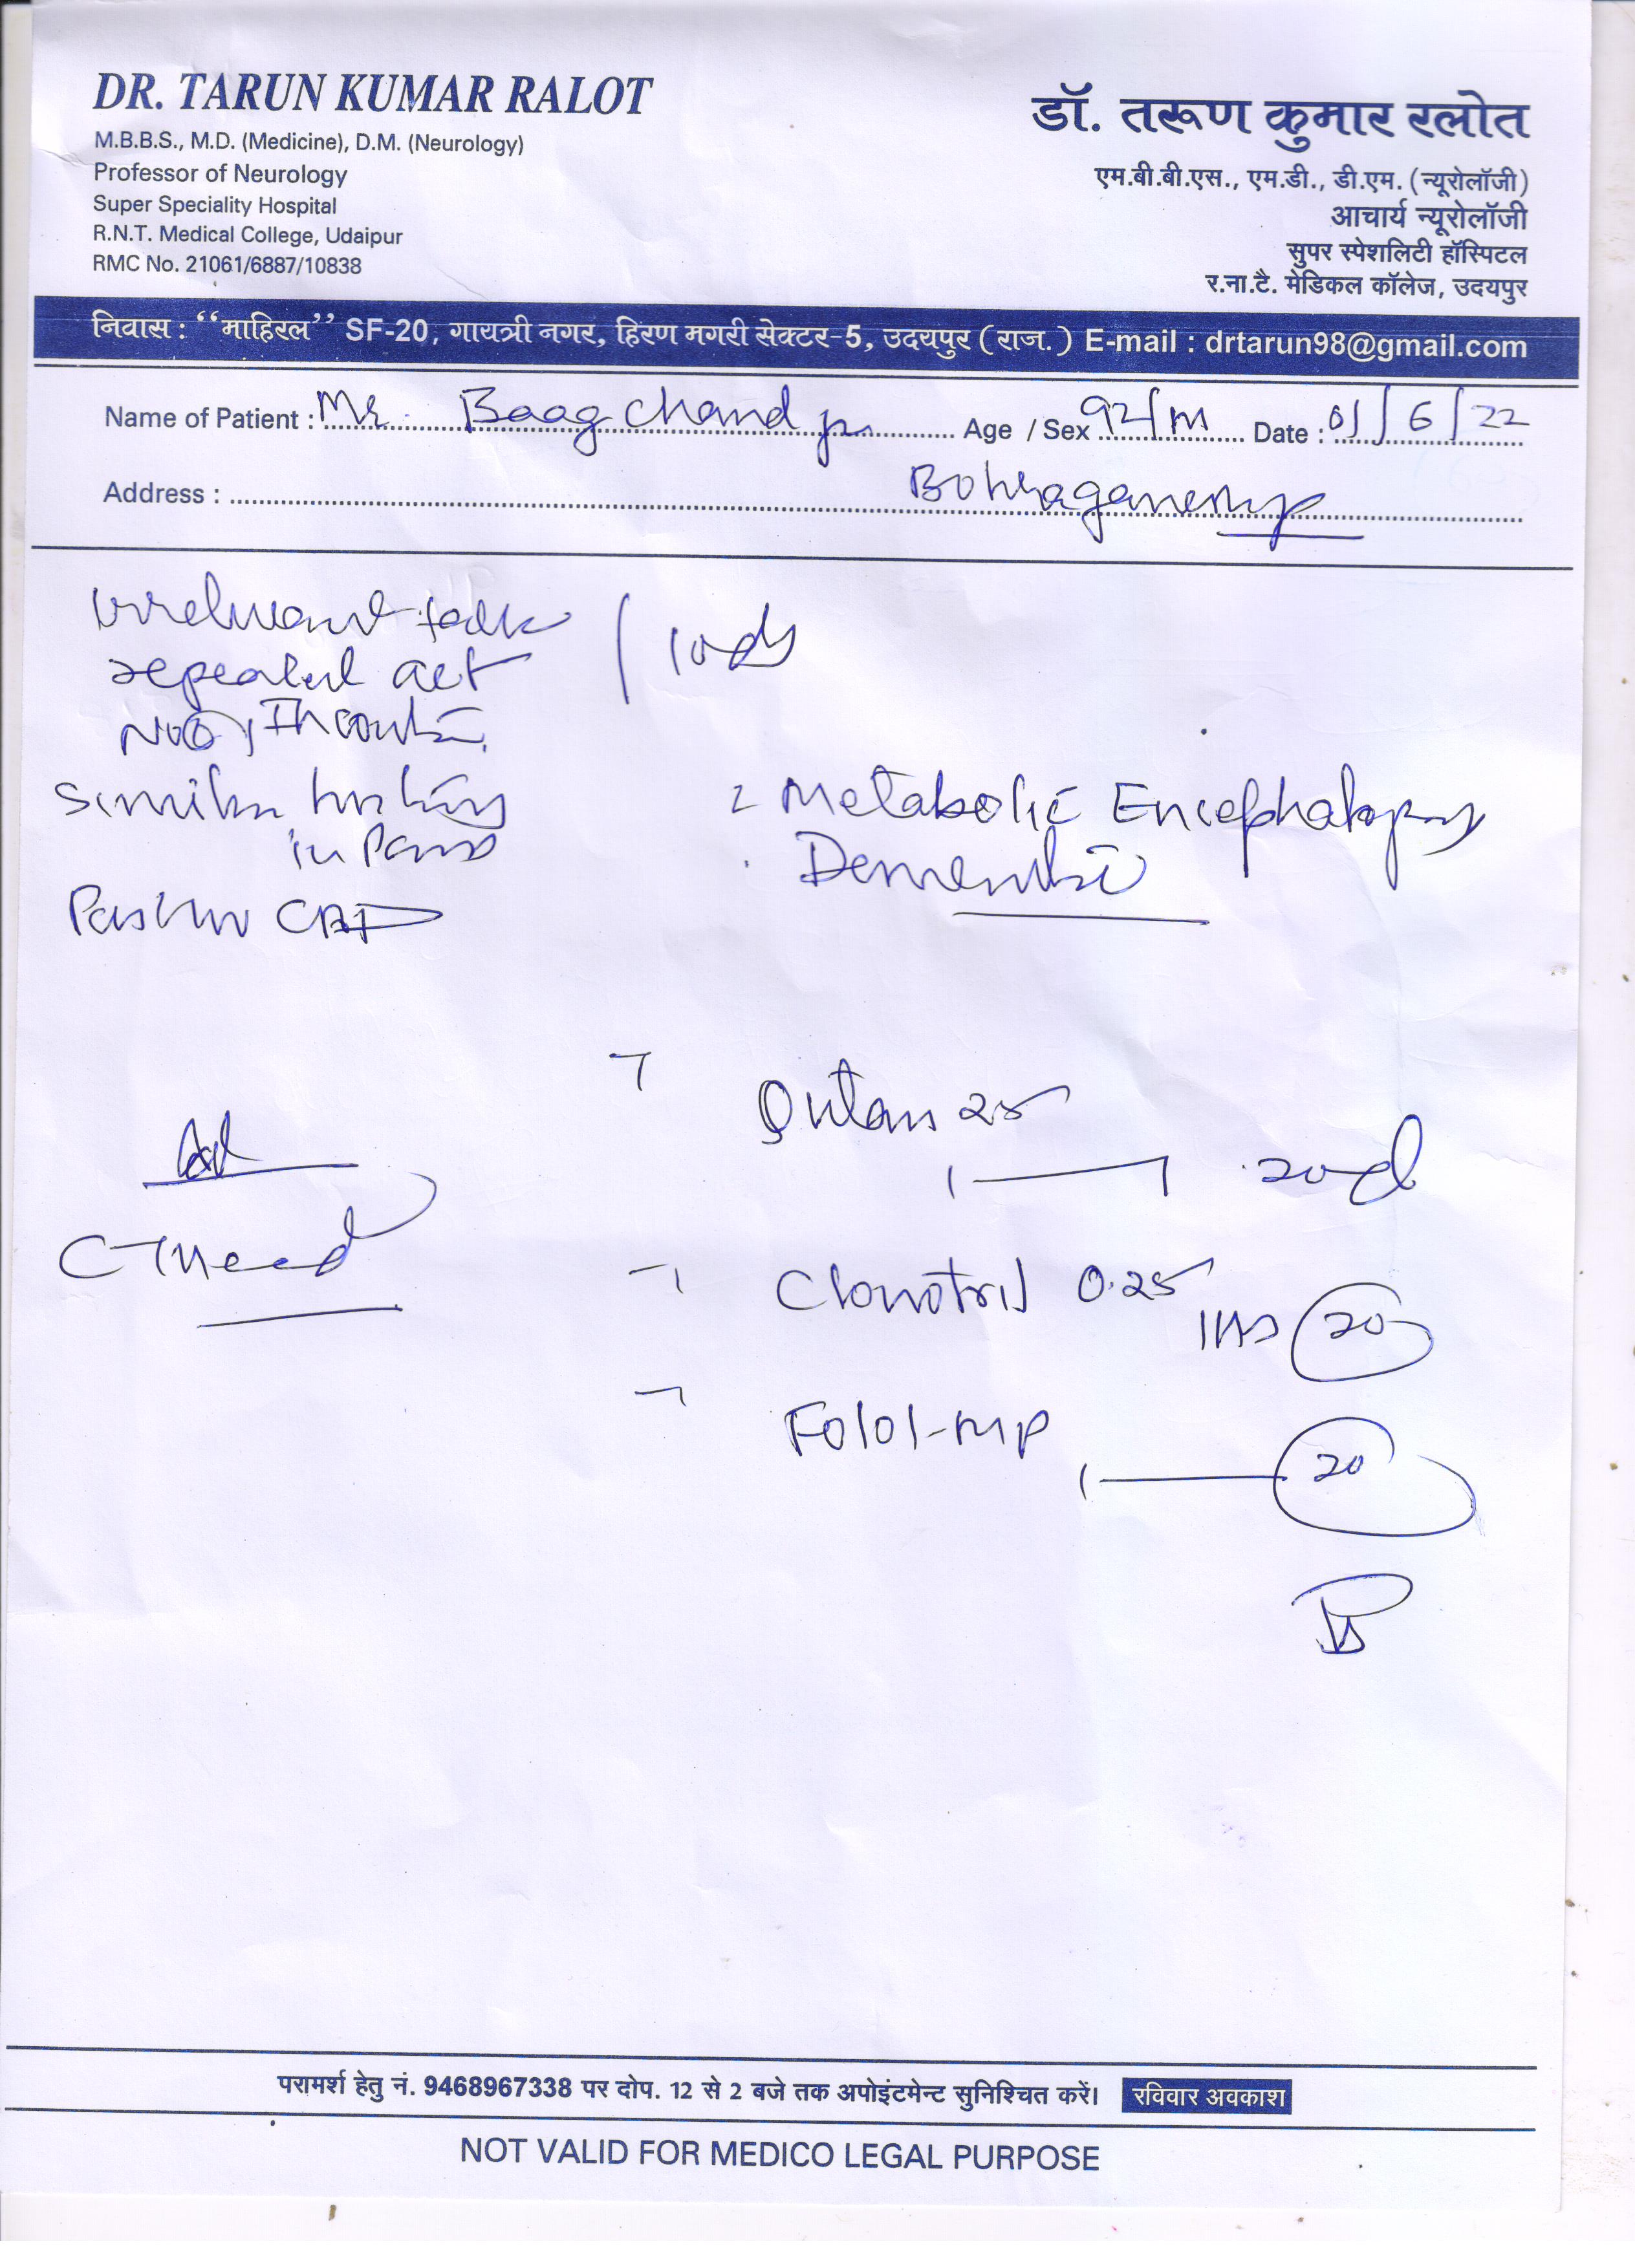 DR. TARUN KUMAR RALOT
M.B.B.S., M.D. (Medicine), D.M. (Neurology)
Professor of Neurology
Super Speciality Hospital
R.N.T. Medical College, Udaipur
RMC No. 21061/6887/10838
डॉ. तरूण कुमार रलोत
एम.बी.बी.एस., एम.डी., डी.एम. (न्यूरोलॉजी)
आचार्य न्यूरोलॉजी
सुपर स्पेशलिटी हॉस्पिटल
र.ना.टै. मेडिकल कॉलेज, उदयपुर
निवास : “माहिरल” SF-20, गायत्री नगर, हिरण मगरी सेक्टर-5, उदयपुर (राज.) E-mail : drtarun98@gmail.com
Name of Patient : Mr. Baag Chand Age / Sex 92/m Date : 01/6/22
Address : Bohraganeshji
irrelevant talk
repeated act
10 d
Similar history
in Past
CAD
Metabolic Encephalopathy
Dementia
Qutan 25
1 — 1 20 d
CT head
Clonotril 0.25
1 HS 20
Folol-MP
1 — 20
परामर्श हेतु नं. 9468967338 पर दोप. 12 से 2 बजे तक अपोइंटमेन्ट सुनिश्चित करें। रविवार अवकाश
NOT VALID FOR MEDICO LEGAL PURPOSE